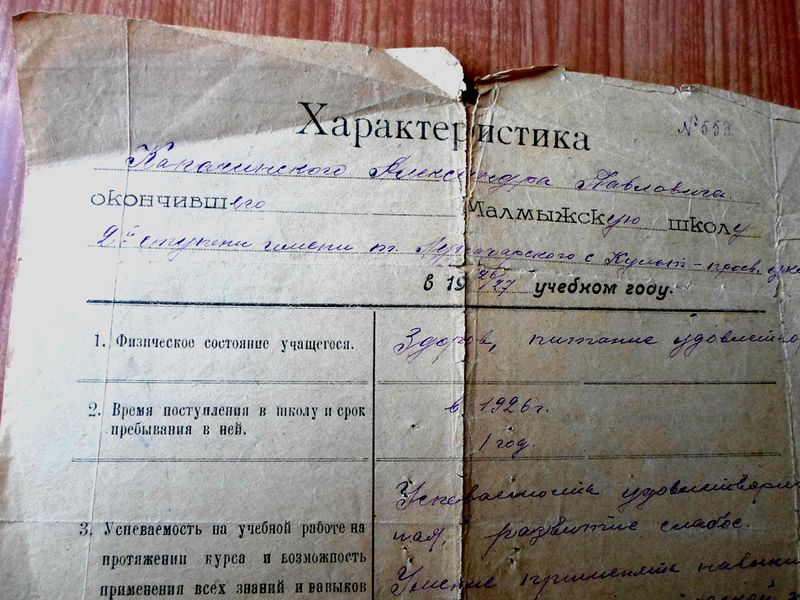 Характеристика
№553
Александра Павловича.
окончившего Малмыжскую школу
2й ступени имени т. Луначарского с Культ-просв.
в 1926/27 учебном году.
1. Физическое состояние учащегося.
Здоров, питание удовлетво
2. Время поступления в школу и срок
пребывания в ней.
в 1926 г.
1 год.
3. Успеваемость на учебной работе на
протяжении курса и возможность
применения всех знаний и навыков
Успеваемость удовлетвори
ная, развитие слабое.
Умение применять навыки